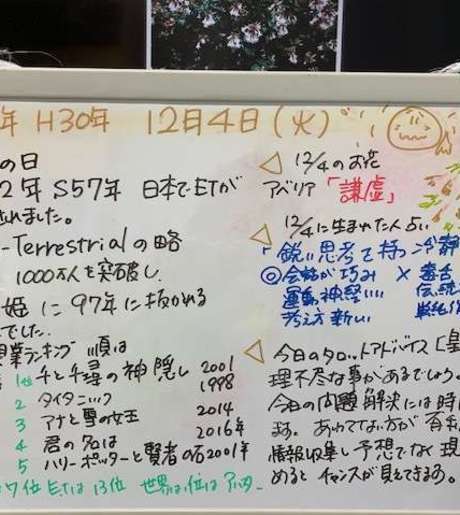 年 H30年 12月4日(火)
の日
2年 S57年 日本でETが
されました。
-Terrestrialの略
1000万人を突破し
姫に97年に抜かれる
でした。
業ランキング 順は
1位 千と千尋の神隠し 2001
2 タイタニック 1998
3 アナと雪の女王 2014
4 君の名は 2016年
5 ハリーポッターと賢者の石 2001年
7位 E.t.は13位 世界は1位は
12/4のお花
アベリア「謙虚」
12/4に生まれた人占い
「鋭い思考で持つ冷静
◎会話が巧み ×
運動神経いい 伝統
考え方新しい
今日のタロットアドバイス
理不尽な事があるでしょう。
今日の問題解決には時
ます。あわてない方が有
情報収集し予想でなく現
めるとチャンスが見えてきます。